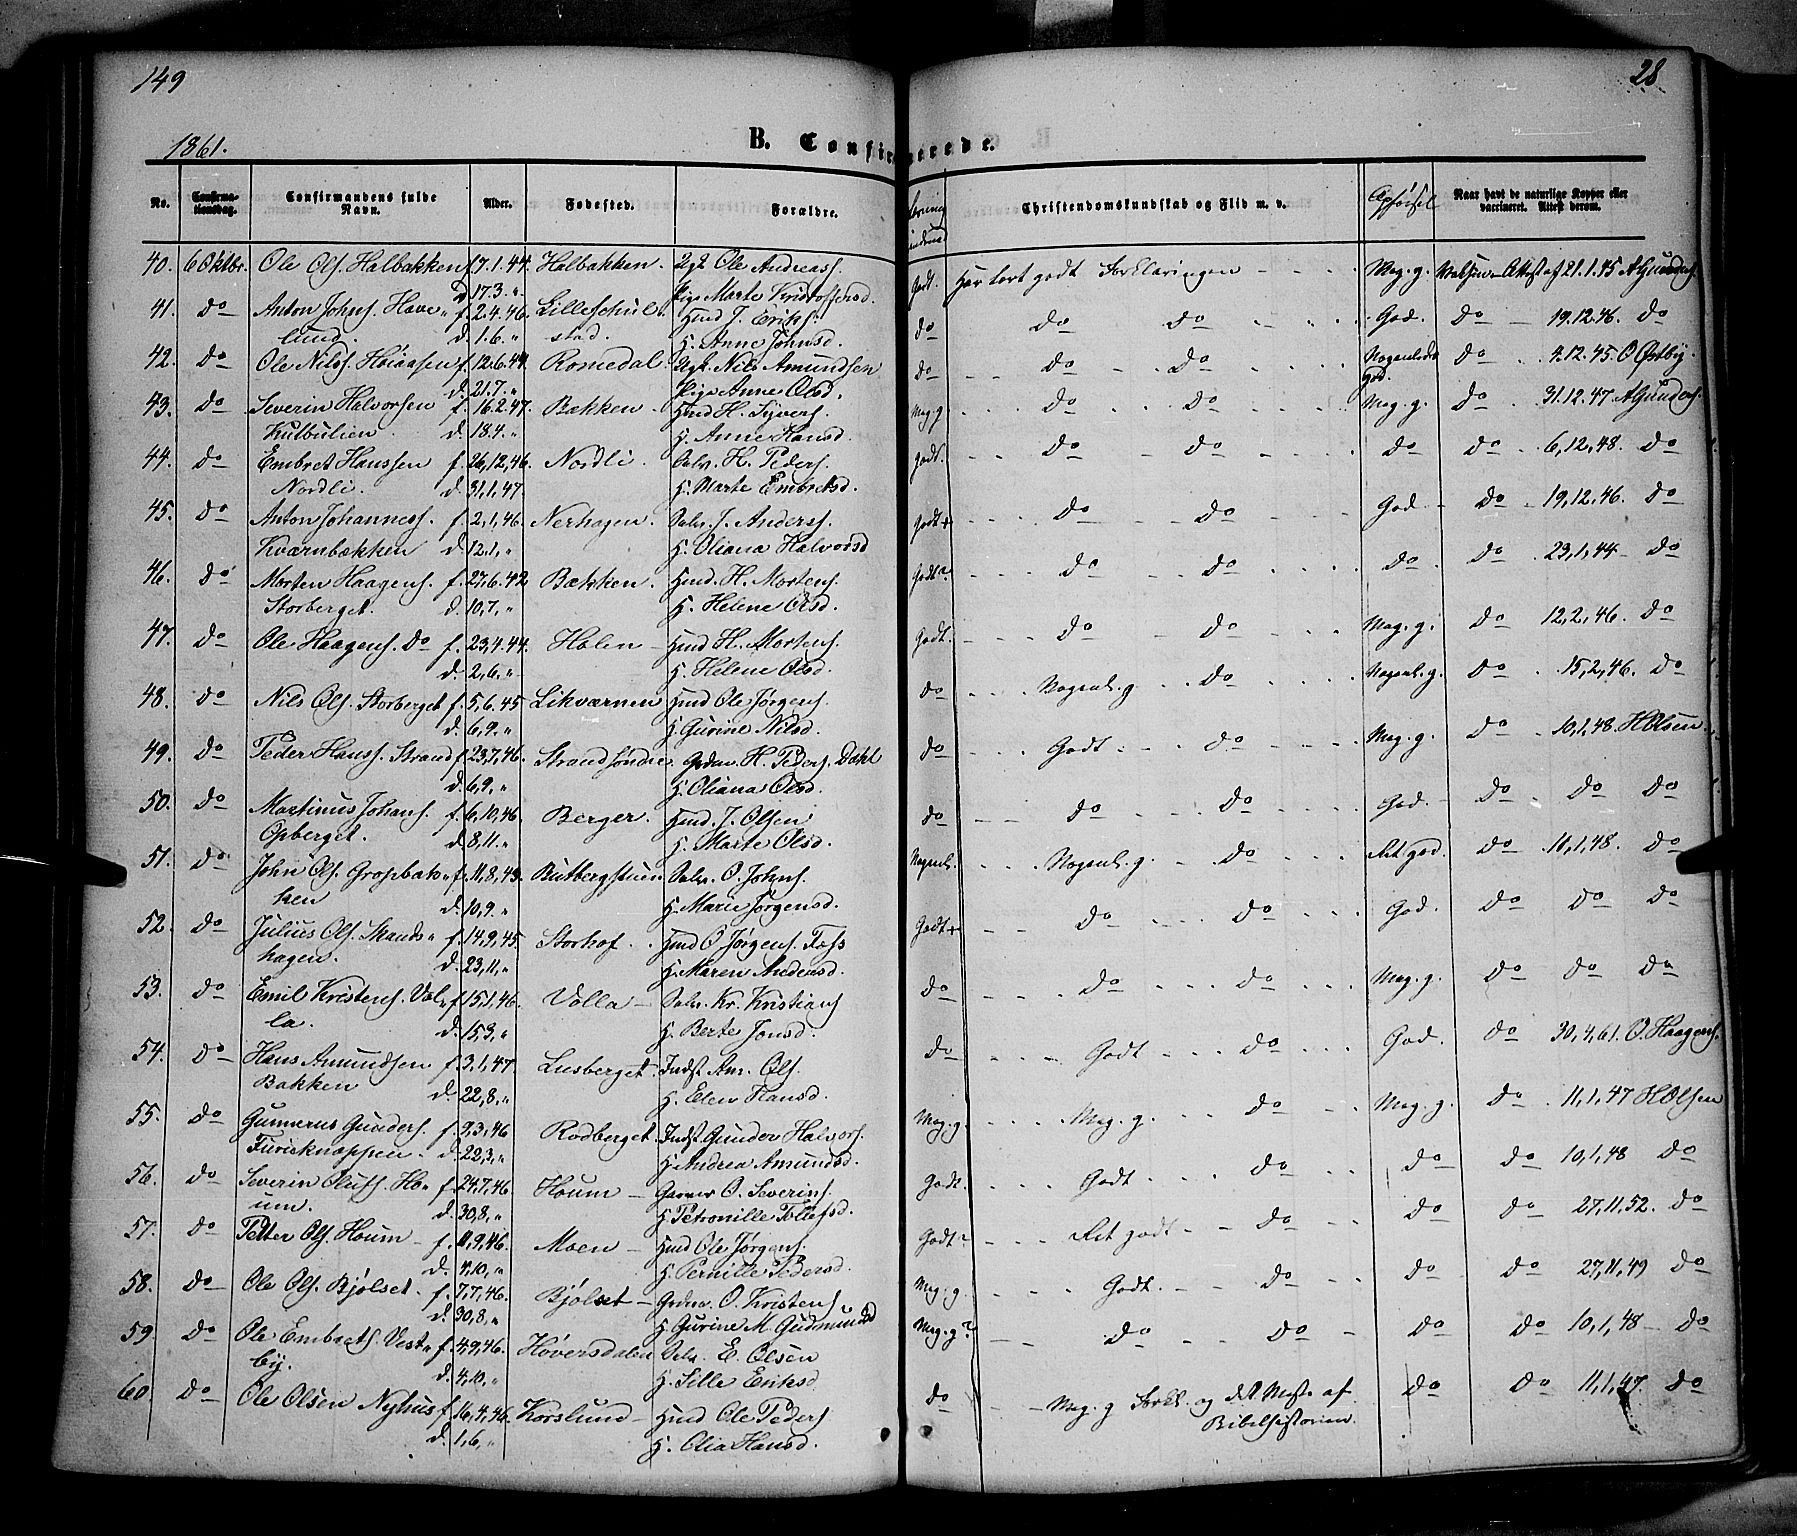 149
28
1861.
B. Confirmerede.
No.
Confirma-
tionsdag.
Confirmandens fulde
Navn.
Alder.
Fødested.
Forældre.
Christendomskundskab og Flid m. v.
Opførsel
Naar havt de naturlige Kopper eller
vaccineret. Attest derom.
40. 6 Oktbr. Ole Ols. Halbakken f. 7.1.44. Halbakken. Ugt Ole Andreass. Godt. Har lært godt Forklaringen Meg. g. Attest af 21.1.45 A Gunders.
D. 17.3. „ Pige Marte Kristoffersd.
41. do Anton Johns. Have- f. 2.4.46. Lilleschul- Hmd J. Eriks. do do do God. do 19.12.46. do
lund. d. 1.6. „ stad. H. Anne Johnsd.
42. do Ole Nilss. Høiaasen f. 12.6.44 Romedal. Ugt. Nils Amundsen do do do Nogenlede do 4.12.45 O Østby.
d. 21.7. „ Pige Anne Olsd. god.
43. do Severin Halvorsen f. 16.2.47. Bækken Hmd H. Syvers. Meg. g do do Meg. g. do 31.12.47 A Gunders.
Kulbulien. d. 18.4. „ H. Anne Hansd.
44. do Embret Hanssen f. 26,12,46. Nordli. Selv. H. Peders. godt. do do do do 6,12,48. do
Nordli. d. 31,1,47. H. Marte Embretsd.
45. do Anton Johanness. f. 2,1,46. Nerhagen. Selv. J. Anders. Godt+ do do God. do 19,12,46. do
Kværnbækken d. 12,1, „ H. Oliana Halvorsd
46. do Morten Haagens. f. 27,6.42 Bækken. Hmd. H. Mortens. Godt? do do do. do 23,1,44 do
Storberget. d. 10,7, „ H. Helene Olsd.
47. do Ole Haagens. do f. 23,4.44. Holen Hmd H. Mortens. Godt. do do Meg. g. do 12,2,46. do
d. 2,6, „ H. Helene Olsd.
48. do Nils Ols. Storberget f. 5,6.45 Likværnen Hmd Ole Jørgens. do Nogenl. g. do Nogenl. g. do 15,2,46. do
d. 6,9, „ H. Gurine Nilsd.
49. do Peder Hanss. Strand f. 23,7,46. Strandsøndre Grdm. H. Peders. Dahl do Godt do Meg. g. do 10,1,48. H Olsen
d. 6,9, „ H. Oliana Olsd.
50. do Martinus Johans. f. 6,10,46 Berger. Hmd. J. Olsen do do do God. do do do
Opberget. d. 8,11, „ H. Marte Olsd.
51. do John Ols. Gropbak- f. 11,8,43. Selv. O. Johns. Nogenl. Nogenl. g. do Ret god. do 11,1,48. do
ken d. 10,9. „ H. Marie Jørgensd.
52. do Julius Ols. Skands- f. 14,9,45. Storhof. Hmd O. Jørgens. Godt+ do do God. do do do
hagen. d. 23,11, „ H. Maren Andersd.
53. do Emil Kristens. Vol- f. 15,1,46. Volla Selv. Kr. Kristians do do do Meg. g. do do do
la. d. 15,3, „ H. Berte Jonsd.
54. do Hans Amundsen f. 3,1,47. Lusberget. Indst Am. Ols. do Godt do God. do 30,4,61. O. Haagens.
Bakken d. 22,8, „ H. Elen Hansd.
55. do Gunnerus Gunders. f. 9,3,46 Rødberget. Indst Gunder Halvors. Meg. g. Meg. g. do Meg. g. do 11,1,47 H Olsen
Furuknappen d. 22,3, „ H. Andrea Amundsd.
56. do Severin Olufs. Ho- f. 24,7,46. Houm O. Severins. Godt. Godt do do do 10,1,48 do
um. d. 30,8, „ H. Petronille Tollefsd.
57. do Petter Ols. Houm f. 11,9,46. Moen Hmd Ole Jørgens. Godt? Ret godt do do do 27,11,52. do
d. 4,10, „ H. Pernille Pedersd.
58. do Ole Ols. Bjølset. f. 7,7,46. Bjølset Grdm. O. Kristens. Meg. g. Godt. do do do 27,11,49 do
d. 30,8, „ H. Gurine M. Gudmundsd
59. do Ole Embrets. Vest- f. 4,9,46. Hoversdalen Selv. E. Olsen Meg. g? do do do do 10,1,48 do
by. d. 4,10, „ H. Sille Eriksd.
60. do Ole Olsen Nyhus f. 16,4,46 Korslund Hmd Ole Peders do Meg. g Forkl. og det Meste af do do 11,1,47. do
d. 1,6, „ H. Olia Hansd. Bibelhistorien.